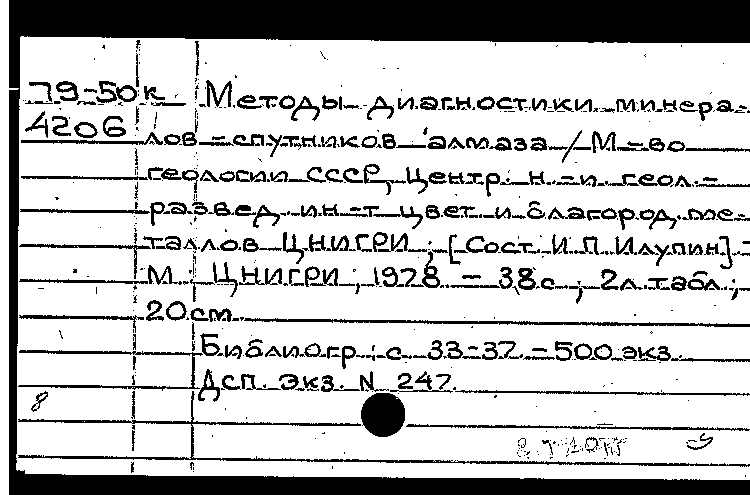 79-50к Методы диагностики минера-
4206 лов-спутников алмаза / М-во
геологии СССР, Центр. н.-и. геол.-
развед. ин-т цвет. и благород. ме-
таллов ЦНИГРИ ; [Сост. И.П. Илупин] -
М. : ЦНИГРИ, 1978 - 38с., 2л. табл.;
20см
Библиогр.: с. 33-37. - 500 экз.
Дсп. Экз. N 247.
8